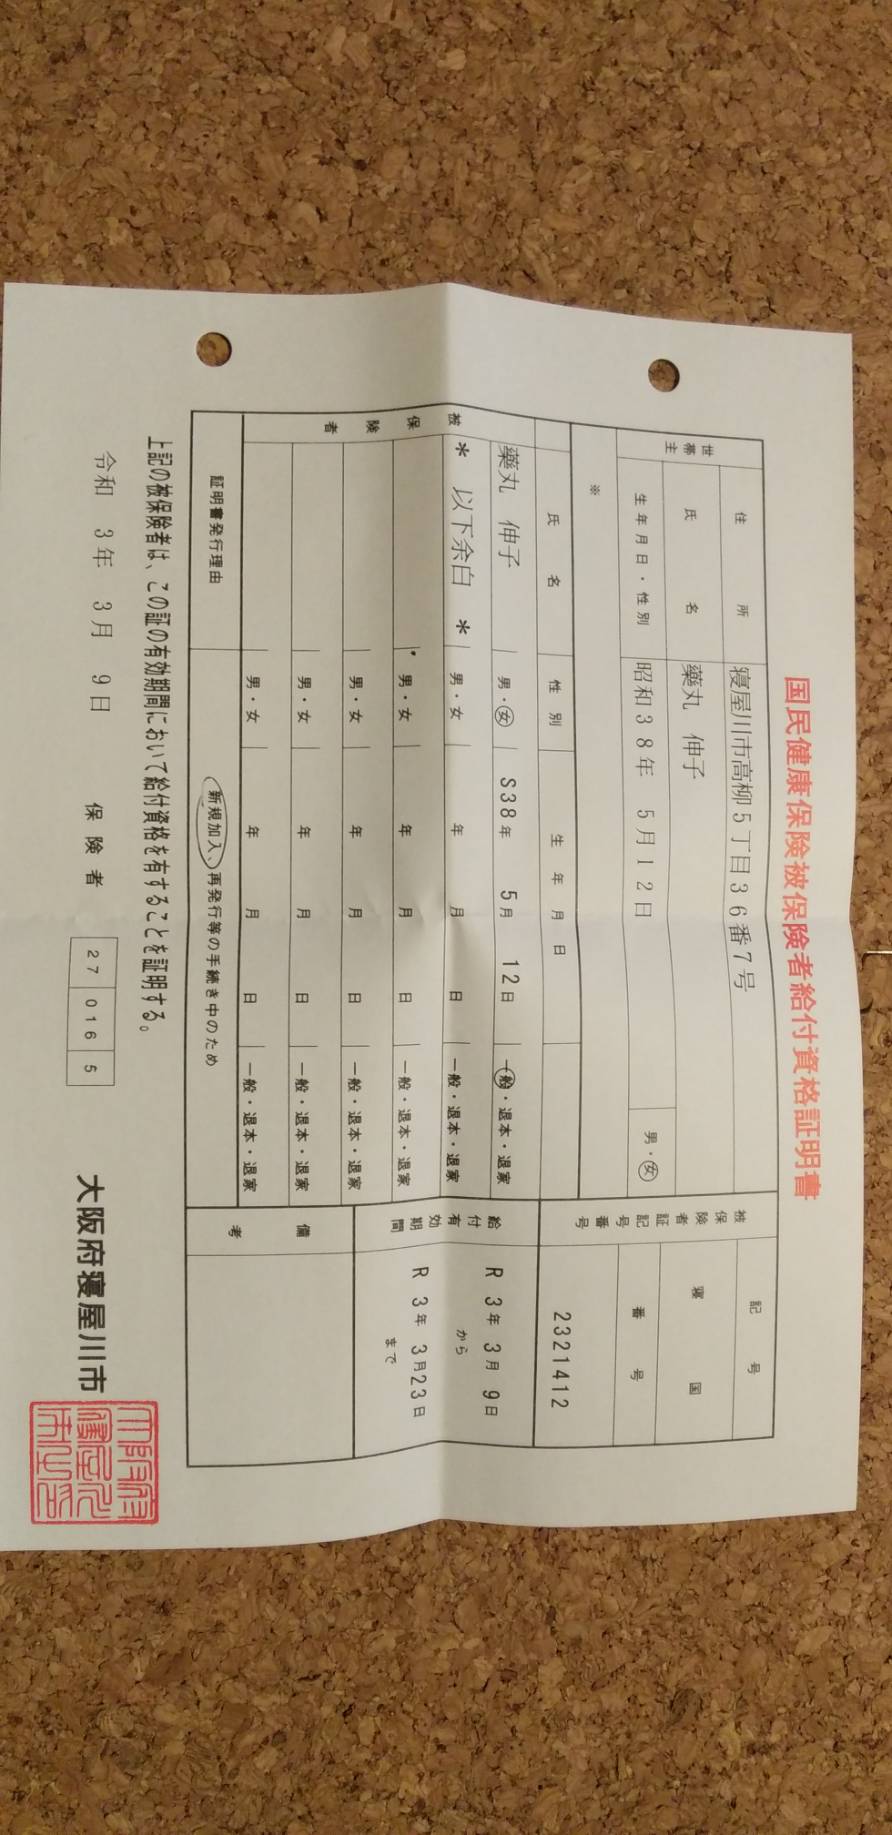 国民健康保険被保険者給付資格証明書
世帯主
住所 寝屋川市高柳5丁目36番7号
氏名 藥丸 伸子
生年月日・性別 昭和38年 5月12日 男・女
※
被保険者証記号番号
記号
寝 国
番号
2321412
被保険者
氏名 性別 生年月日
藥丸 伸子 男・女 S38年 5月 12日 一般・退本・退家
* 以下余白 * 男・女 年 月 日 一般・退本・退家
男・女 年 月 日 一般・退本・退家
男・女 年 月 日 一般・退本・退家
男・女 年 月 日 一般・退本・退家
男・女 年 月 日 一般・退本・退家
給付有効期間
R 3年 3月 9日
から
R 3年 3月23日
まで
備考
証明書発行理由 新規加入、再発行等の手続き中のため
上記の被保険者は、この証の有効期間において給付資格を有することを証明する。
令和 3年 3月 9日
保険者 27 016 5 大阪府寝屋川市